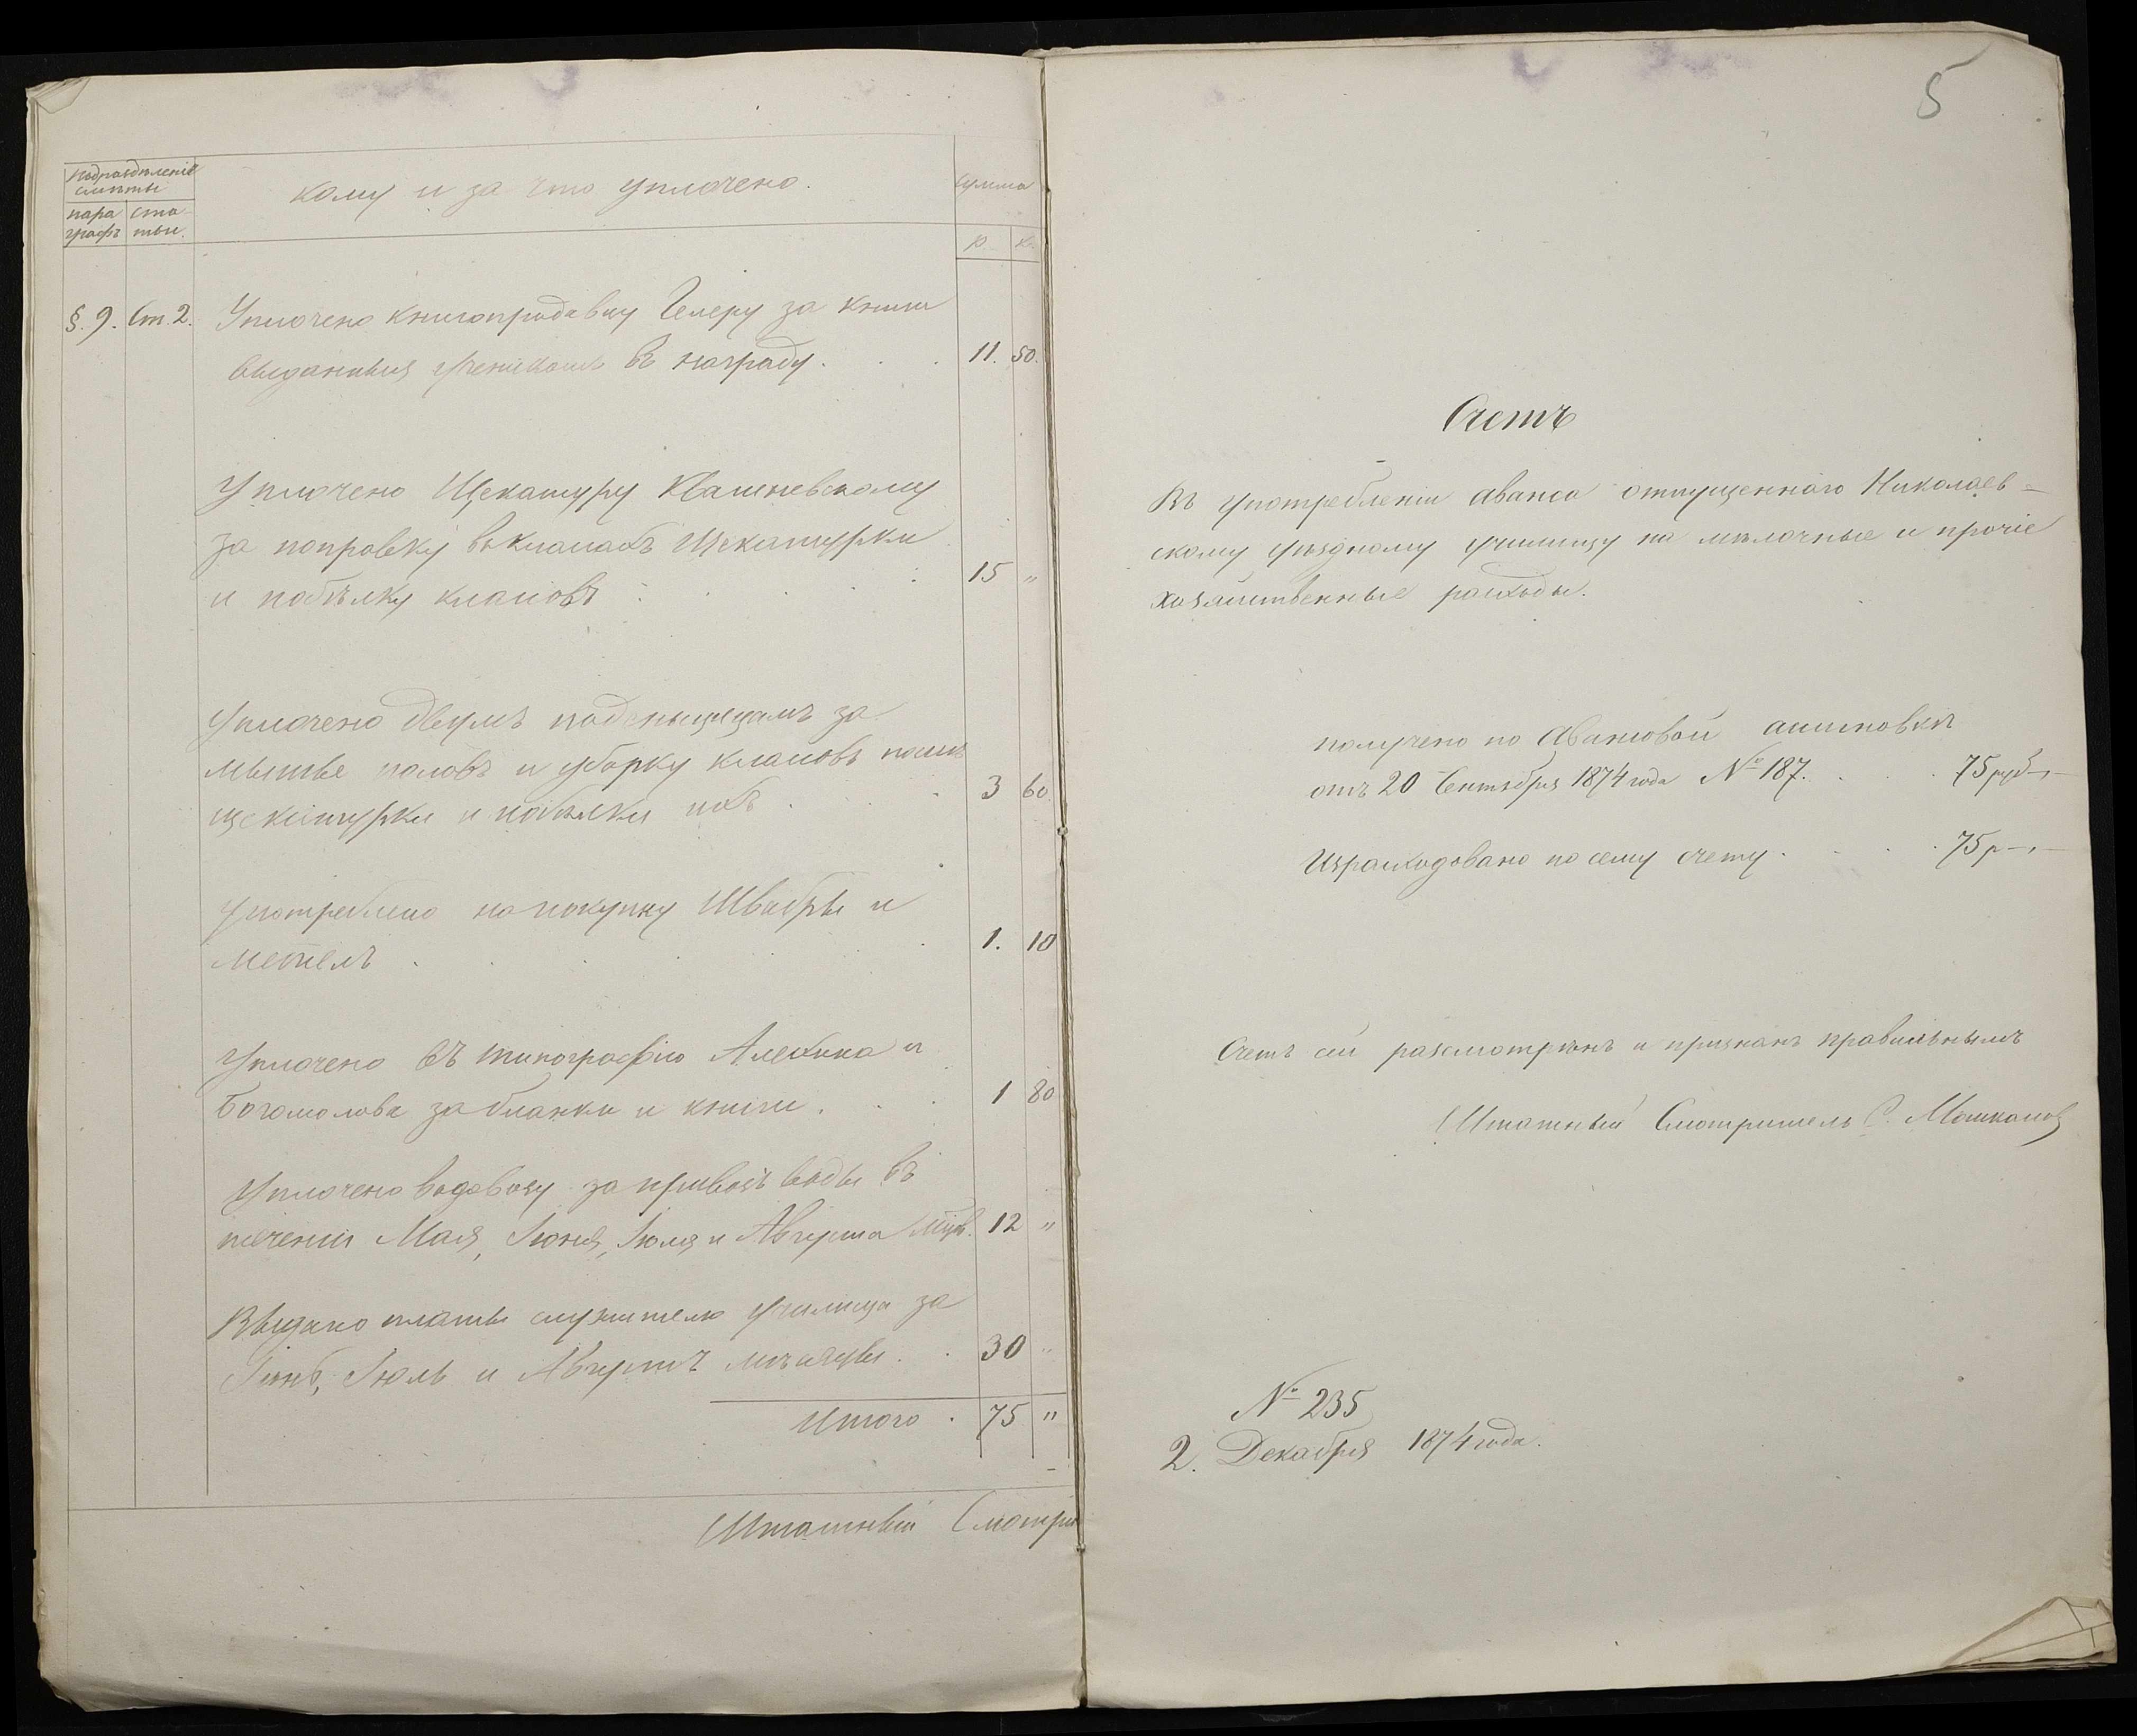 Подраздѣленіе
смѣты
пара
графъ
ста
тьи.
кому и за что уплочено.
Сумма
р.
к.
§. 9. Ст. 2. Уплочено книгопродавцу Гелеру за книги
выданныя ученикамъ въ награду. 11. 50.
Уплочено Щекатуру
за поправку въ класахъ Щекатурки
и побѣлку класовъ 15 "
Уплочено двумъ поденьщицамъ за
мытье половъ и уборку класовъ послѣ
щекатурки и побѣлки ихъ 3 60.
Употреблено на покупку Швабры и
метелъ 1. 10
Уплочено въ типографію Алехина и
Богомолова за бланки и книги. 1 80
Уплочено водовозу за привозъ воды въ
теченіи Мая, Іюня, Іюля и Августа мцв. 12 "
Выдано платы служителю училища за
Іюнь, Іюль и Августъ мѣсяцы. 30 "
Итого 75 "
Штатный Смотри
5
Счетъ
Въ употребленіи аванса отпущеннаго Николаев-
скому уѣздному училищу на мѣлочные и прочіе
хозяйственные расходы.
получено по Авансовой асигновкѣ
отъ 20 Сентября 1874 года № 187. 75 руб -,-
Израсходовано по сему счету. 75 р -,-
Счетъ сей разсмотрѣнъ и признанъ правильнымъ
Штатный Смотритель С.
№ 235
2. Декабря 1874 года.